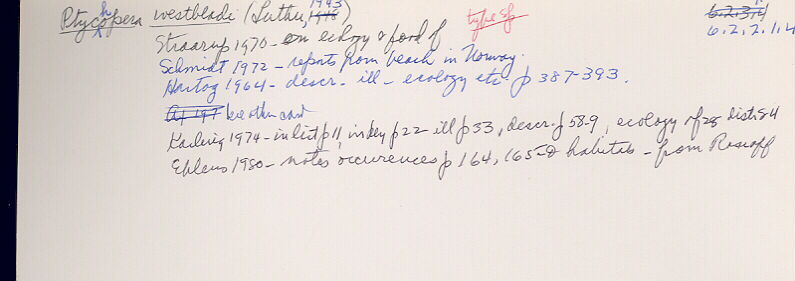 Ptychopera westbladi (Luther, 1943) type sp 6.2.2.1.4
Straarup 1970 - on ecology & food of
Schmidt 1972 - reports from beach in Norway.
Hartog 1964 - descr. - ill - ecology etc. p 387-393.
see other card
Karling 1974 - in list p 11, in key p 22 - ill p 33, descr. p 58-9, ecology p 28 dist. 84
Ehlers 1980 - notes occurences p 164, 165 & habitats - from Roscoff